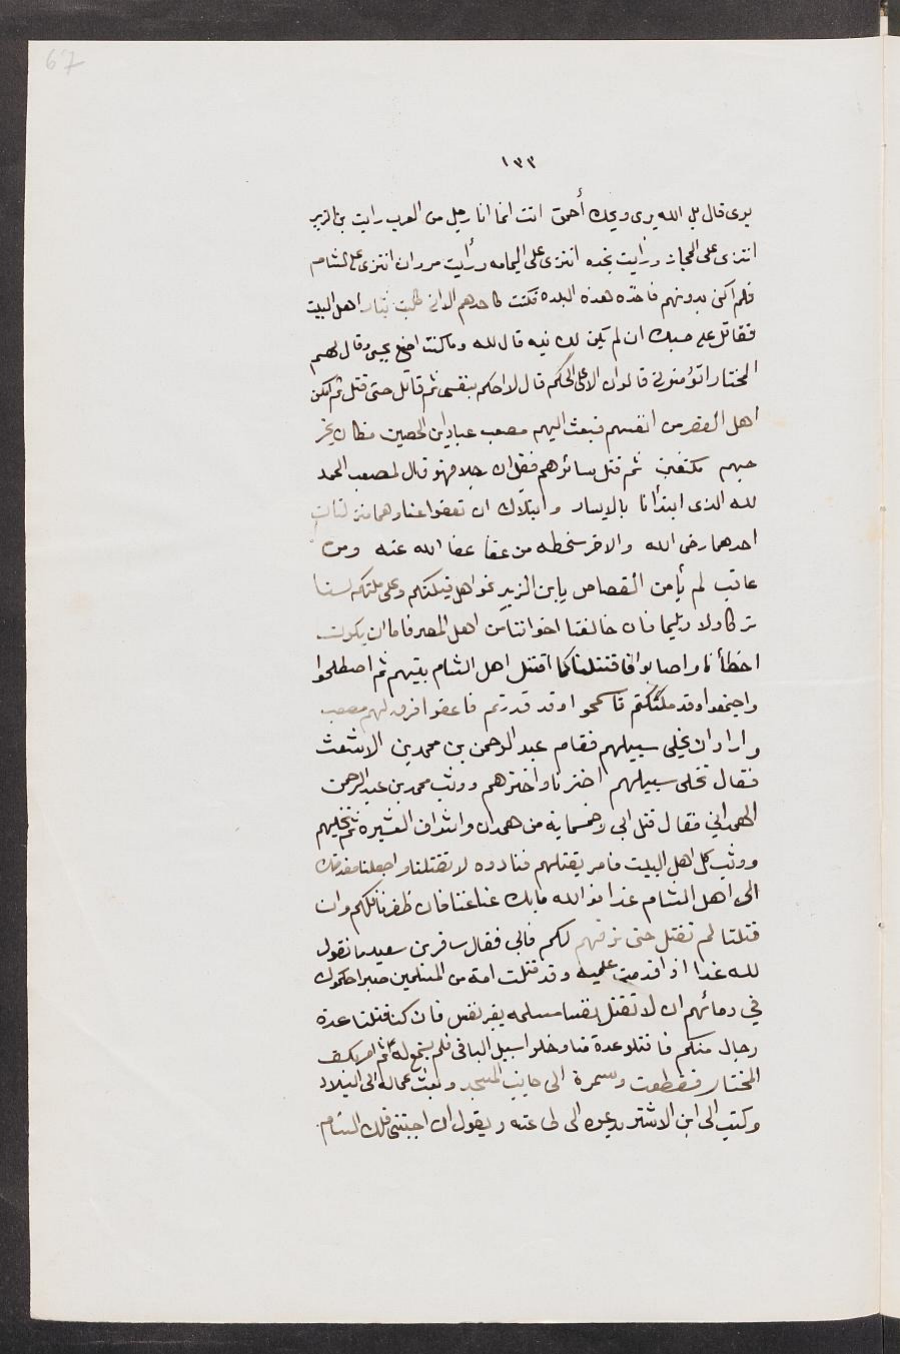 67
١٣٣
يرى قال بل الله يرى ويحك أحمق انت انما انا رجل من العرب رايت بن الزبير
انتزى على الحجاز ورأيت نجده انتزى على اليمامه ورأيت مروان انتزى على الشام
فلم اكن بدونهم فاخذت هذه البلده فكنت كاحدهم الا انى طلبت بثار اهل البيت
فقاتل على حسبك ان لم يكن لك نيه قال لله وما كنت اصنع بحسبى وقال لهم
المختار اتؤمنونى قالوا لا الا على الحكم قال لا احكم بنفسى ثم قاتل حتى قتل ثم امكن
اهل القصر من انفسهم فبعث اليهم مصعب عباد ابن الحصين فكان يخر
جهم مكتفين ثم قتل سائرهم فقيل ان رجلا منهم قال لمصعب الحمد
لله الذى ابتدأنا بالايسار وابتلاك ان تعفوا عنا وهما منزلتان
احدهما رضى الله والاخر سخطه من عفا عفا الله عنه ومن
عاقب لم يأمن القصاص يابن الزبير نحو اهل قبلتكم وعلى ملتكم لسنا
تركا ولا ديلما فان خالفنا اخواننا من اهل المصر فاما ان يكون
اخطأنا واصابوا فاقتتلنا كما اقتتل اهل الشام بينهم ثم اصطلحوا
واجتمعوا وقد ملكتم فاسمحوا وقد قدرتم فاعفوا فرق لهم مصعب
واراد ان يخلى سبيلهم فقام عبد الرحمن بن محمد بن الاشعث
فقال تخلى سبيلهم اخترنا واخترهم ووثب محمد بن عبد الرحمن
الهمدانى فقال قتل ابى وخمسماية من همدان واشراف العشيره ثم تخليهم
ووثب كل اهل البيت فامر بقتلهم فنادوه لا تقتلنا واجعلنا مقدمتك
الى اهل الشام غدا فوالله ما بك عنا غنا فان ظفرنا فلكم وان
قتلنا لم نقتل حتى نرقهم لكم فابى فقال مسافر بن سعيد ما تقول
لله غدا اذا قدمت عليه وقد قتلت امة من المسلمين صبرا حكموك
في دمائهم ان لا تقتل نفسا مسلمه بغير نفس فان كنا قتلنا عدة
رجال منكم فاقتلوا عدة منا وخلوا سبيل الباقى فلم يستمع له ثم امر بكف
المختار فقطعت وسمرة الى جانب المسجد وبعث عماله الى البلاد
وكتب الى ابن الاشتر يدعوه الى طاعته ويقول ان اجبتنى فلك الشام